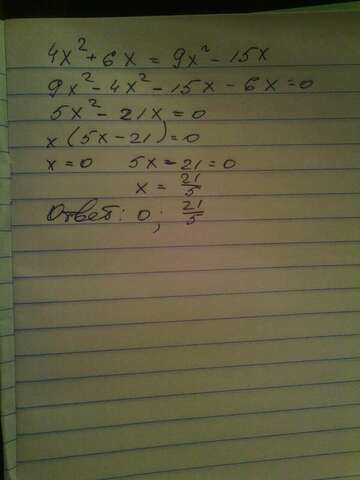 4x² + 6x = 9x² - 15x
9x² - 4x² - 15x - 6x = 0
5x² - 21x = 0
x(5x - 21) = 0
x = 0 5x - 21 = 0
x = 21/5
Ответ: 0; 21/5